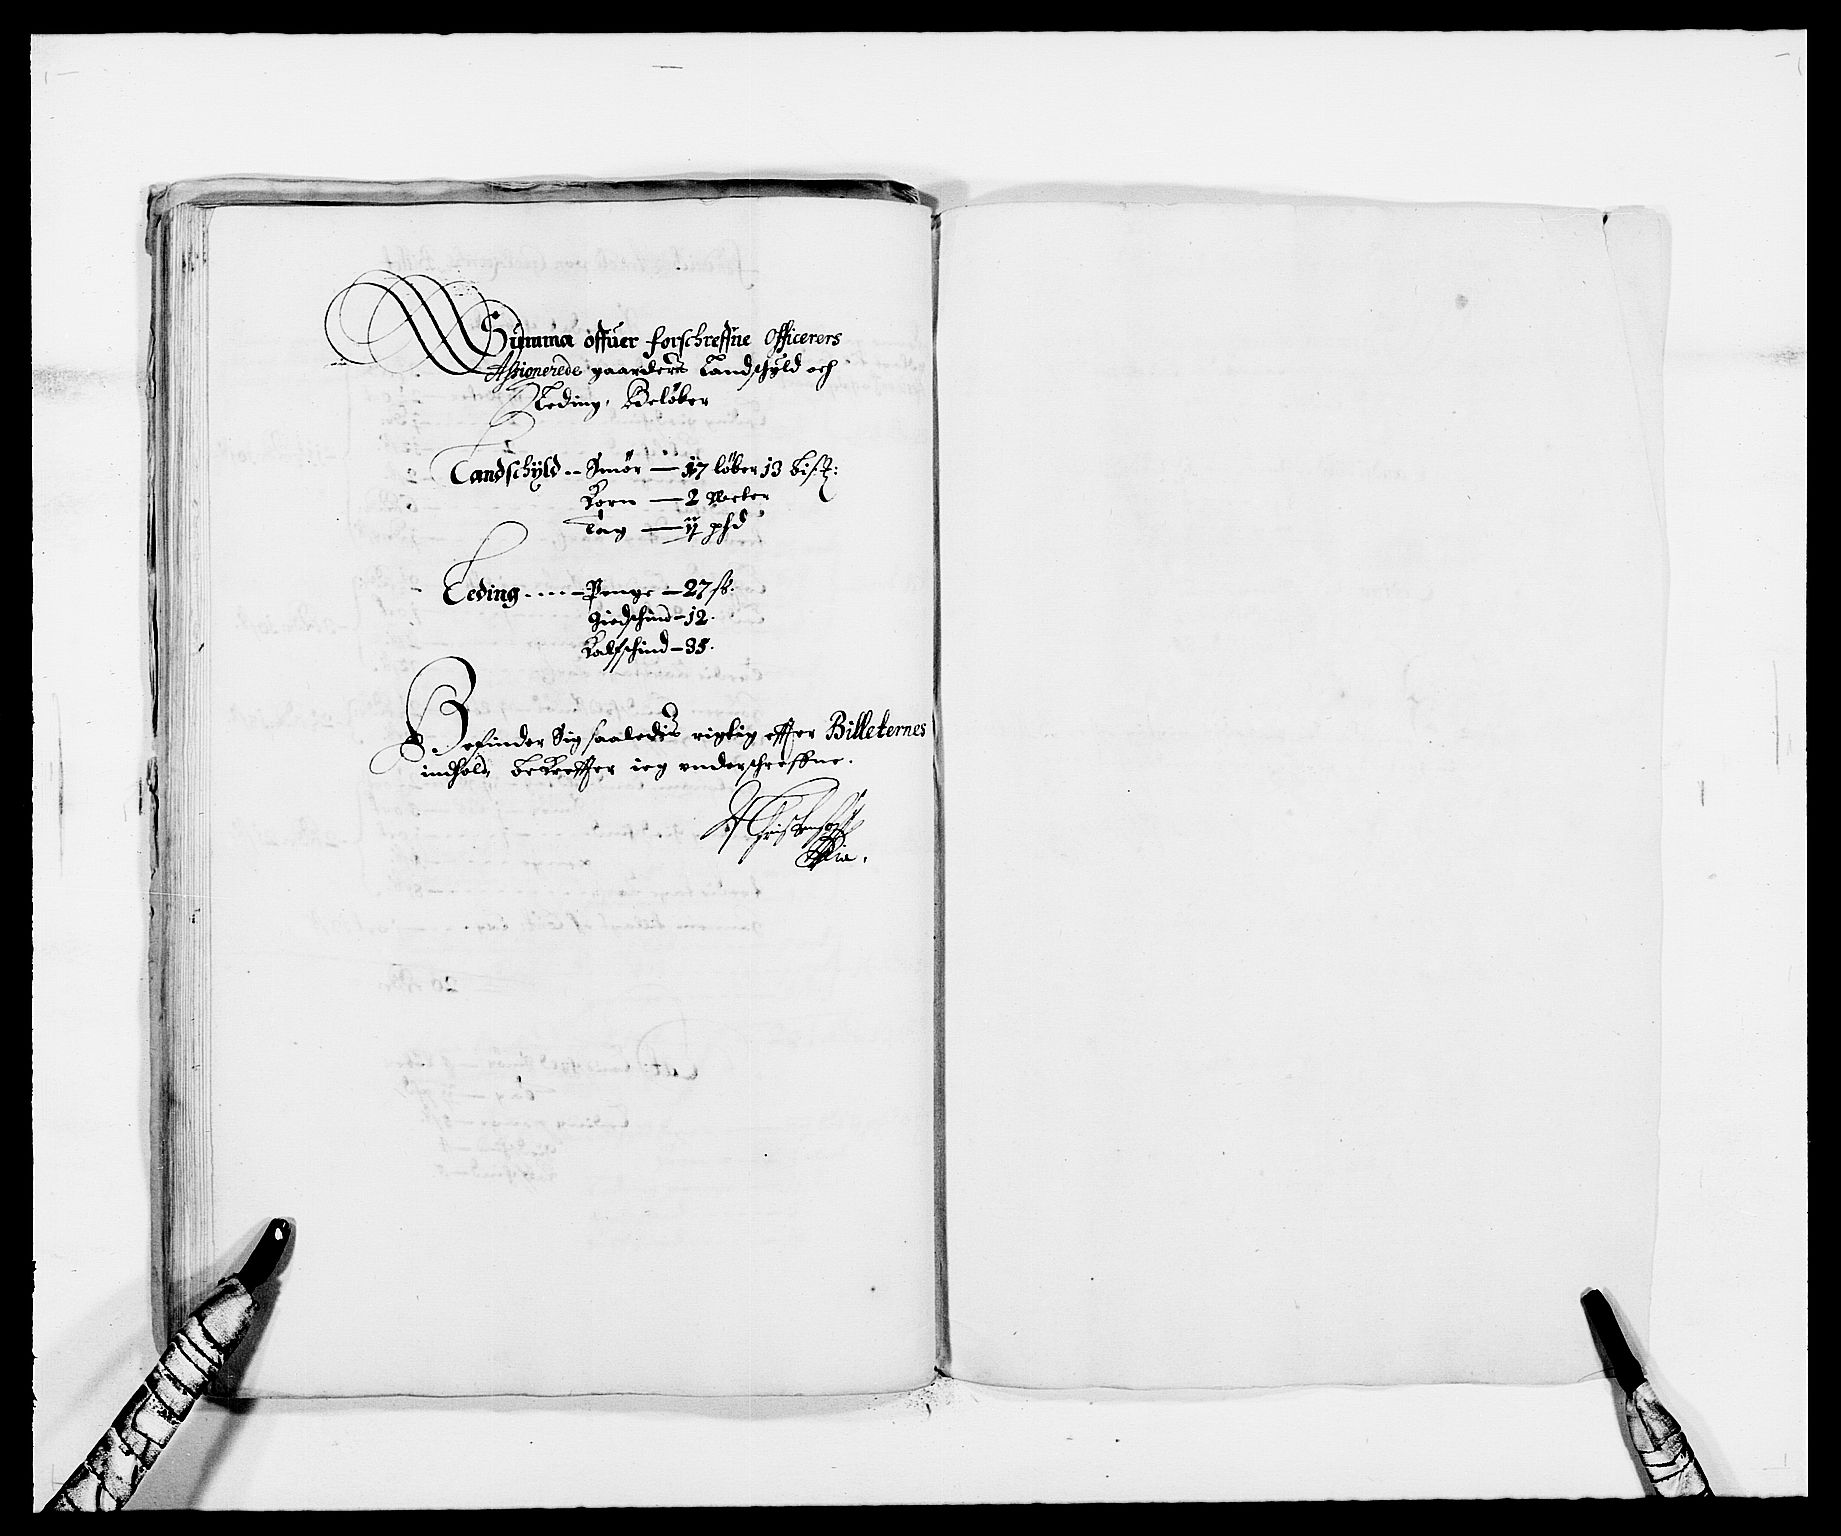 Summa offuer forschreffne Officerers
Assionerede gaarders Landschyld och
Leding, Beløber
Landschyld -- Smør — 17 løber 13
Korn — 2 Vetter
Tag — 11 phd
Leding ---- Penge — 27 sk.
Giedschind — 12.
Kalfschind — 35.
Befinder Sig saaledis rigtig effter Billeternes
indhold, bekreffter ieg underschreffne.
Christensen